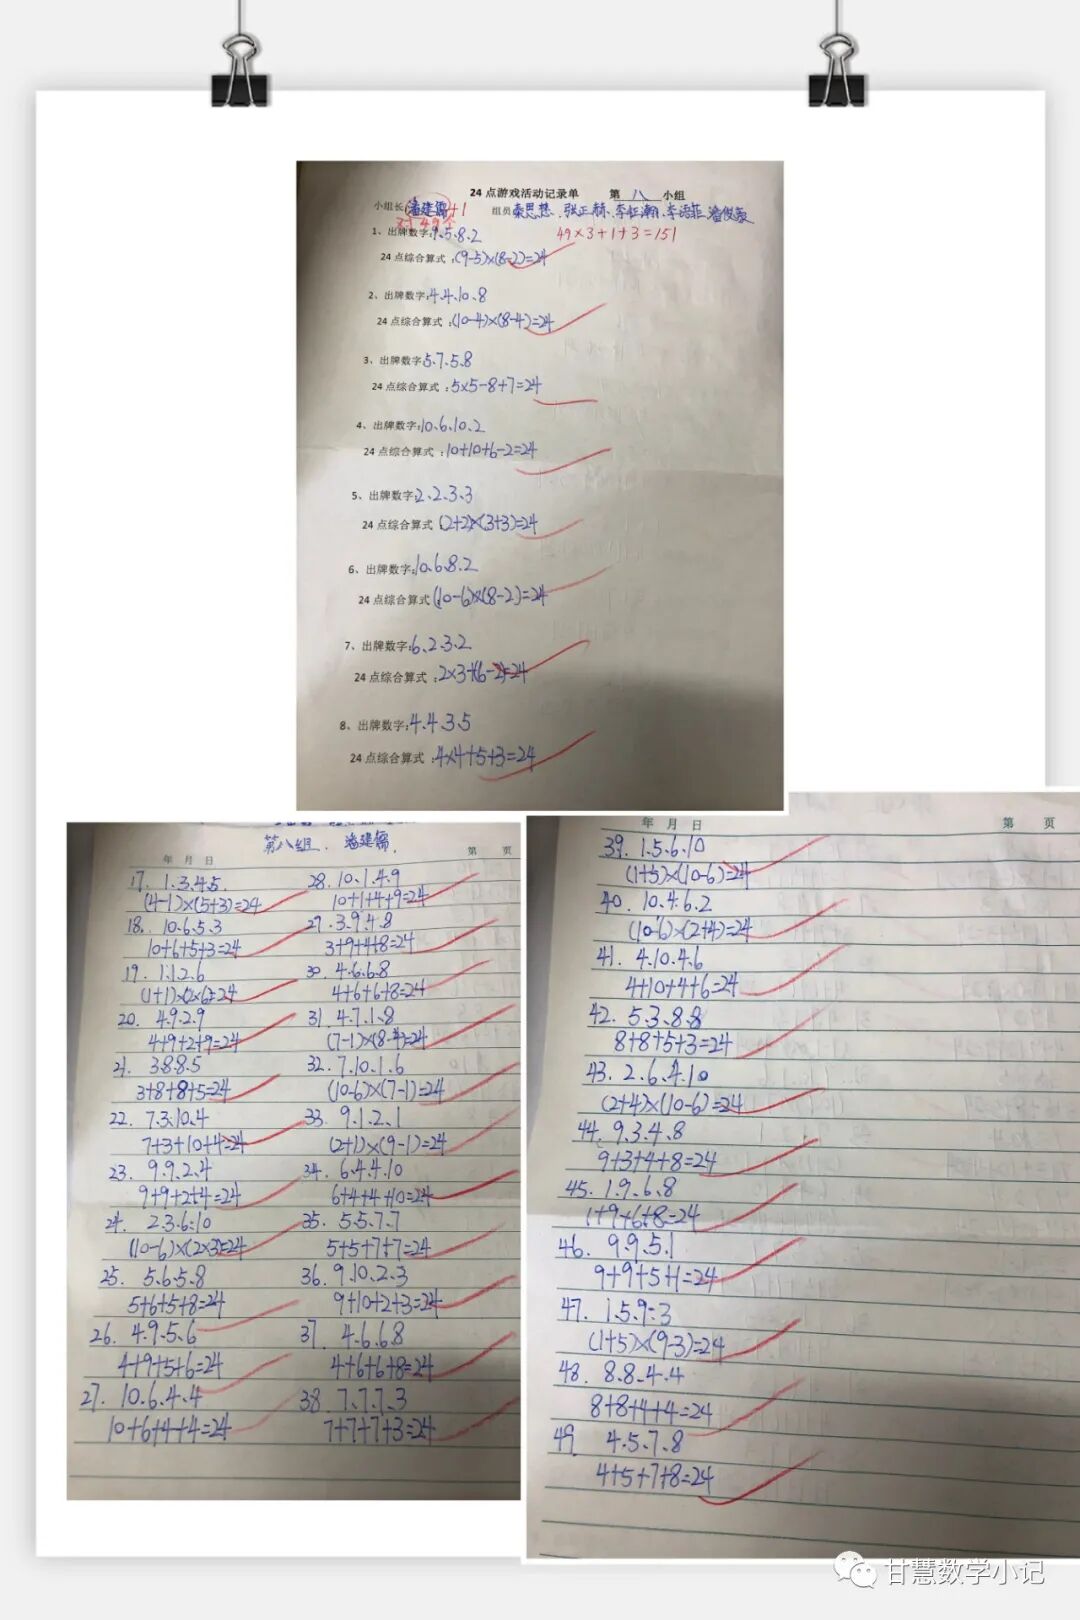 24点游戏活动记录单 第八小组
小组长:潘建儒+1 组员:秦思慧、张正赫、李钰瀚、李语菲、潘俊豪
对49个 49×3+1+3=151
1、出牌数字:9、5、8、2
24点综合算式:(9-5)×(8-2)=24
2、出牌数字:4、4、10、8
24点综合算式:(10-4)×(8-4)=24
3、出牌数字:5、7、5、8
24点综合算式:5×5-8+7=24
4、出牌数字:10、6、10、2
24点综合算式:10+10+6-2=24
5、出牌数字:2、2、3、3
24点综合算式:(2+2)×(3+3)=24
6、出牌数字:10、6、8、2
24点综合算式:(10-6)×(8-2)=24
7、出牌数字:6、2、3、2
24点综合算式:2×3×(6-2)=24
8、出牌数字:4、4、3、5
24点综合算式:4×4+5+3=24
第八组. 潘建儒.
年 月 日 第 页
17. 1、3、4、5.
(4-1)×(5+3)=24
18. 10、6、5、3
10+6+5+3=24
19. 1、1、2、6
(1+1)×(2×6)=24
20. 4、9、2、9
4+9+2+9=24
21. 3、8、8、5
3+8+8+5=24
22. 7、3、10、4
7+3+10+4=24
23. 9、9、2、4
9+9+2+4=24
24. 2、3、6、10
(10-6)×(2×3)=24
25. 5、6、5、8
5+6+5+8=24
26. 4、9、5、6
4+9+5+6=24
27. 10、6、4、4
10+6+4+4=24
28. 10、1、4、9
10+1+4+9=24
29. 3、9、4、8
3+9+4+8=24
30. 4、6、6、8
4+6+6+8=24
31. 4、7、1、8
(7-1)×(8-4)=24
32. 7、10、1、6
(10-6)×(7-1)=24
33. 9、1、2、1
(2+1)×(9-1)=24
34. 6、4、4、10
6+4+4+10=24
35. 5、5、7、7
5+5+7+7=24
36. 9、10、2、3
9+10+2+3=24
37. 4、6、6、8
4+6+6+8=24
38. 7、7、7、3
7+7+7+3=24
年 月 日 第 页
39. 1、5、6、10
(1+5)×(10-6)=24
40. 10、4、6、2
(10-6)×(2+4)=24
41. 4、10、4、6
4+10+4+6=24
42. 5、3、8、8
8+8+5+3=24
43. 2、6、4、10
(2+4)×(10-6)=24
44. 9、3、4、8
9+3+4+8=24
45. 1、9、6、8
1+9+6+8=24
46. 9、9、5、1
9+9+5+1=24
47. 1、5、9、3
(1+5)×(9-3)=24
48. 8、8、4、4
8+8+4+4=24
49. 4、5、7、8
4+5+7+8=24
甘慧数学小记